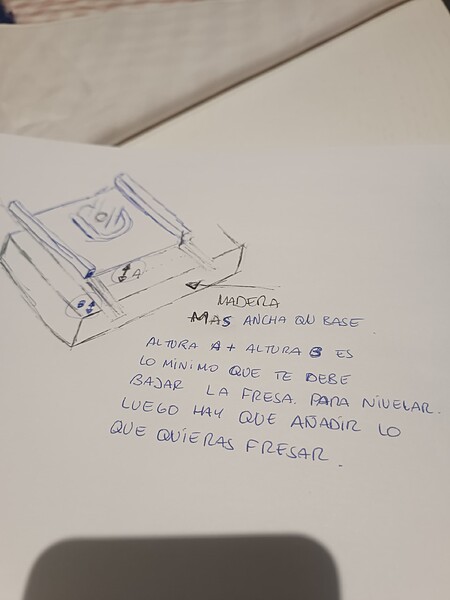 B
A
MADERA
MAS ANCHA QU BASE
ALTURA A + ALTURA B ES
LO MINIMO QUE TE DEBE
BAJAR LA FRESA. PARA NIVELAR.
LUEGO HAY QUE AÑADIR LO
QUE QUIERAS FRESAR.